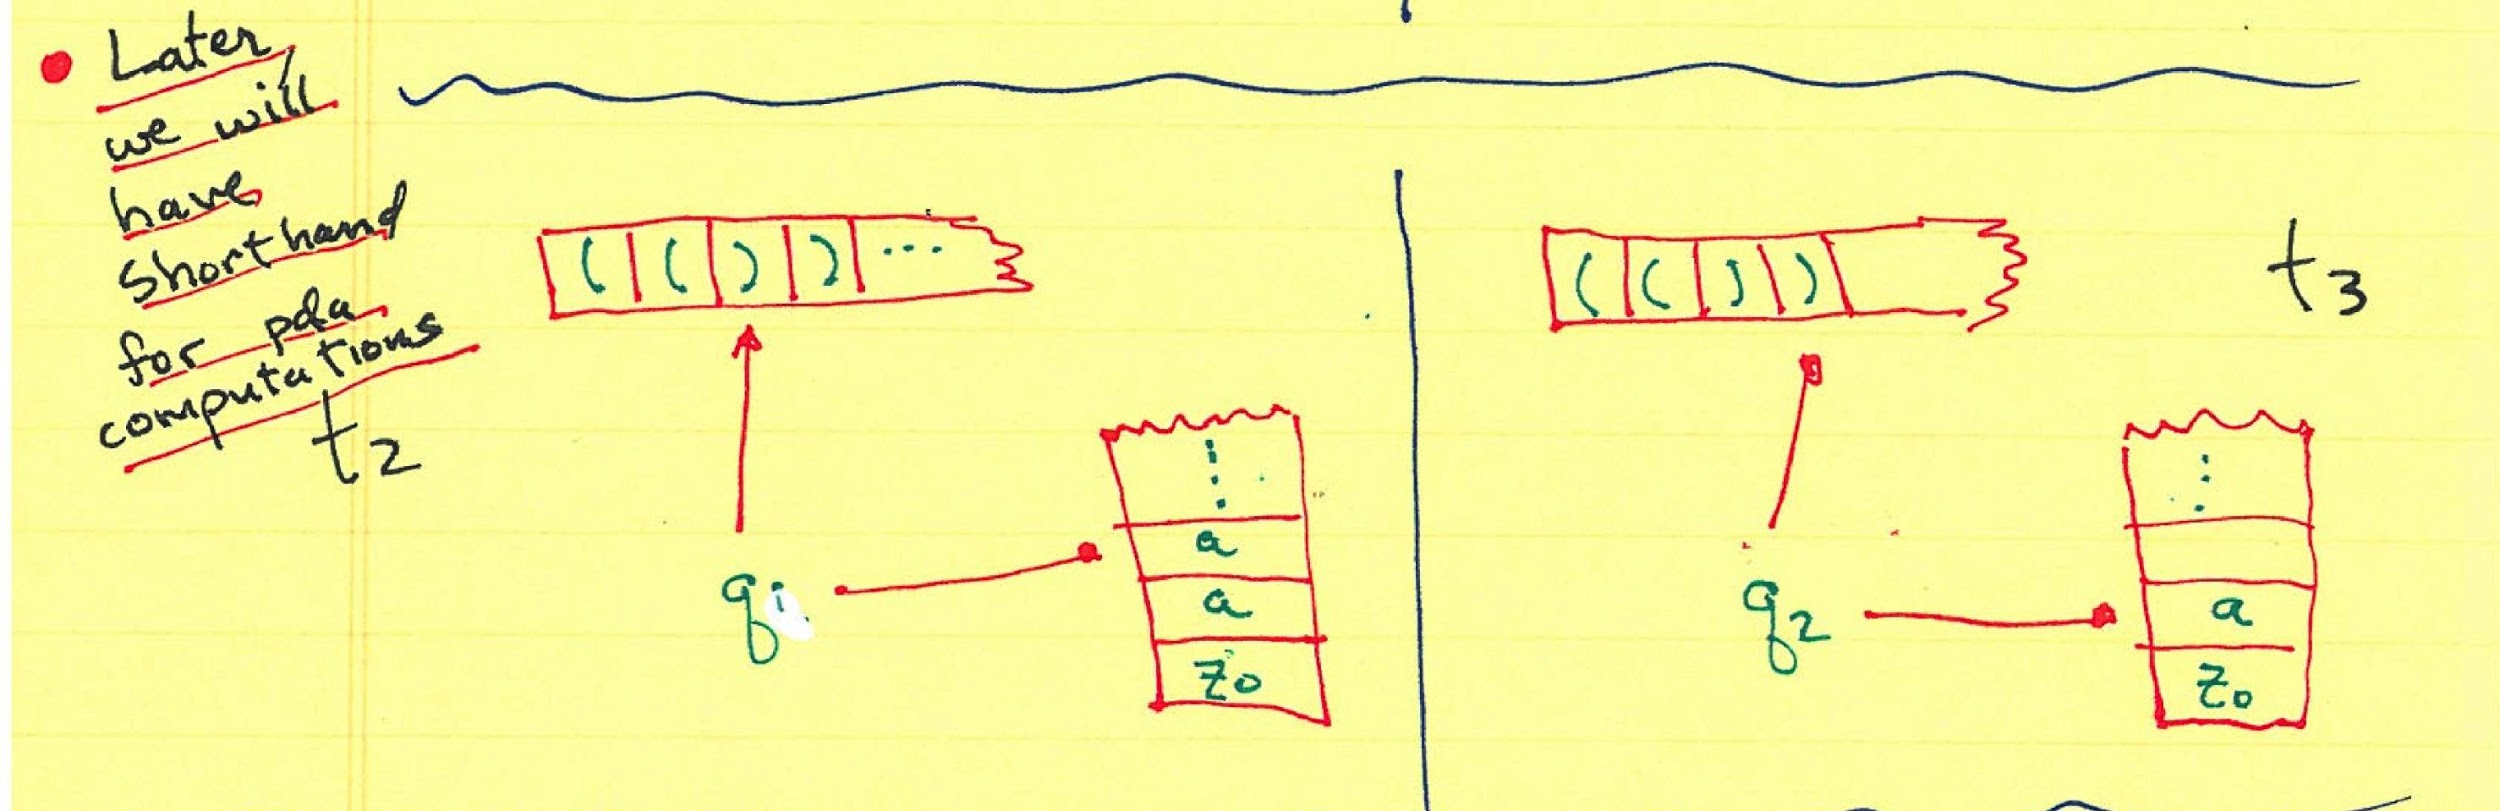 • Later,
we will
have
Shorthand
for pda
computations
t2
( ( ) ) ...
a
a
z0
qi
t3
( ( ) )
a
z0
q2